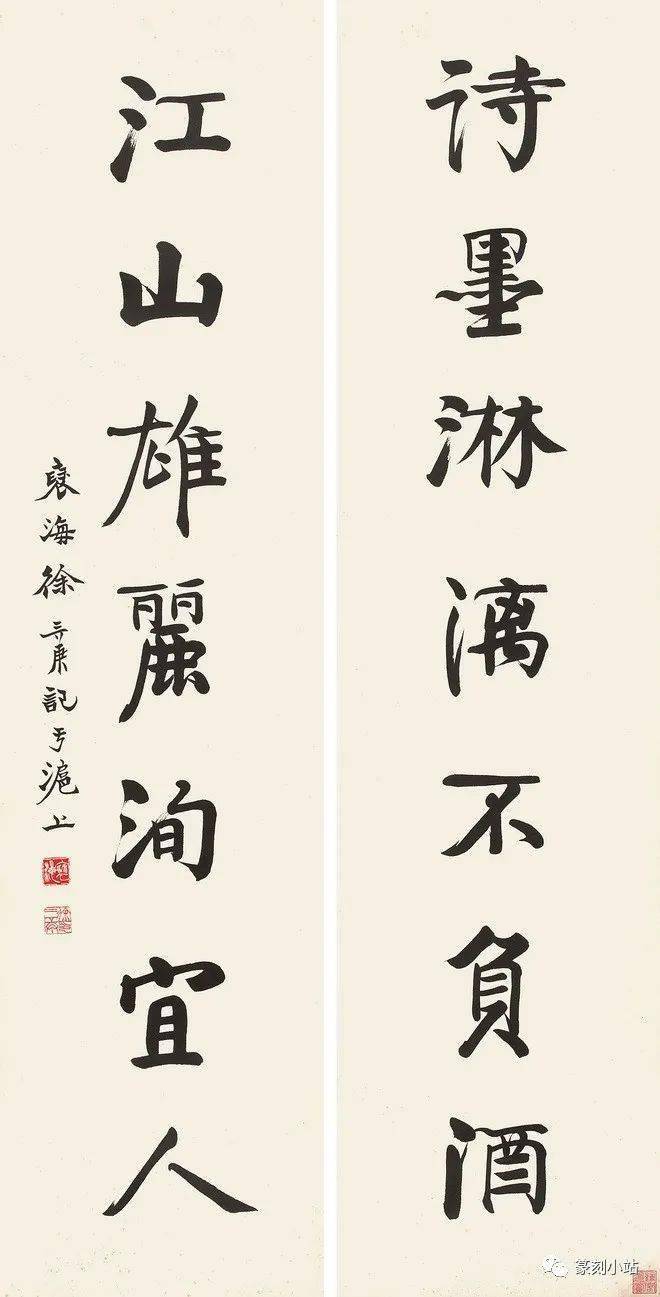 詩墨淋漓不負酒
江山雄麗洵宜人
褎海徐三庚記于滬上
篆刻小站